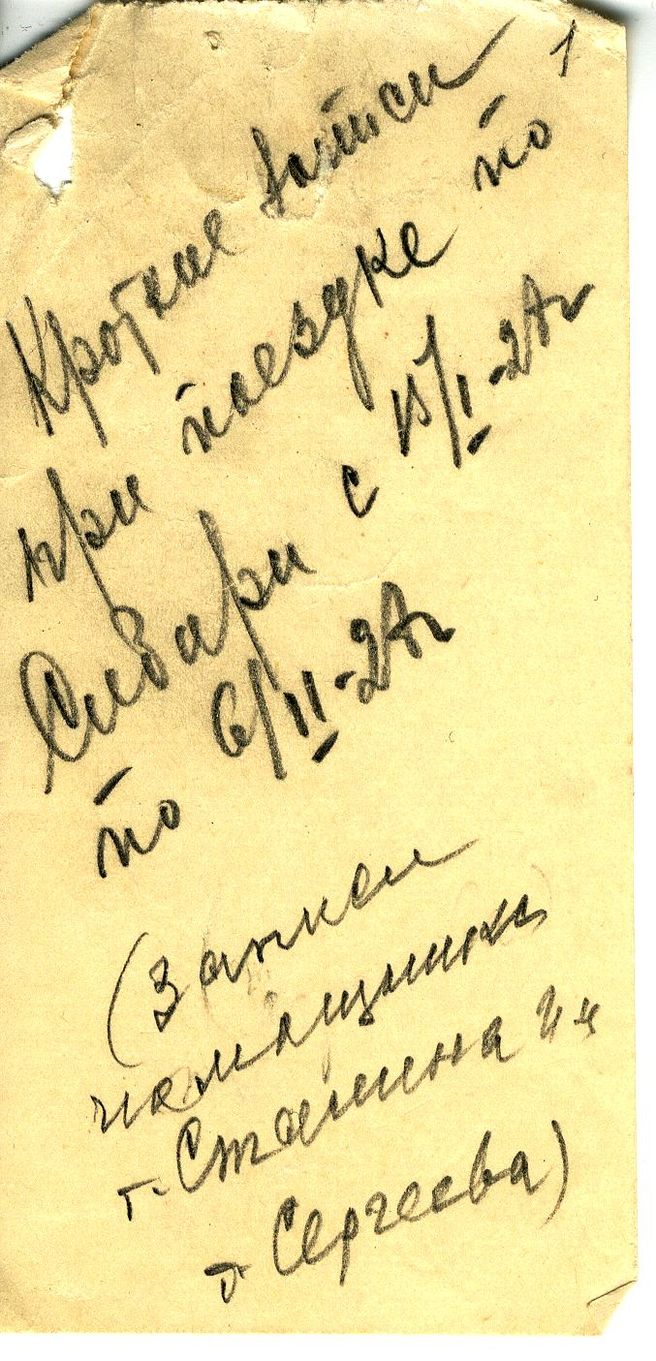 1
Краткие записи
при поездке по
Сибири с 15/I-28г
по 6/II-28г
(Записи
помощника
т. Сталина
т Сергеева)